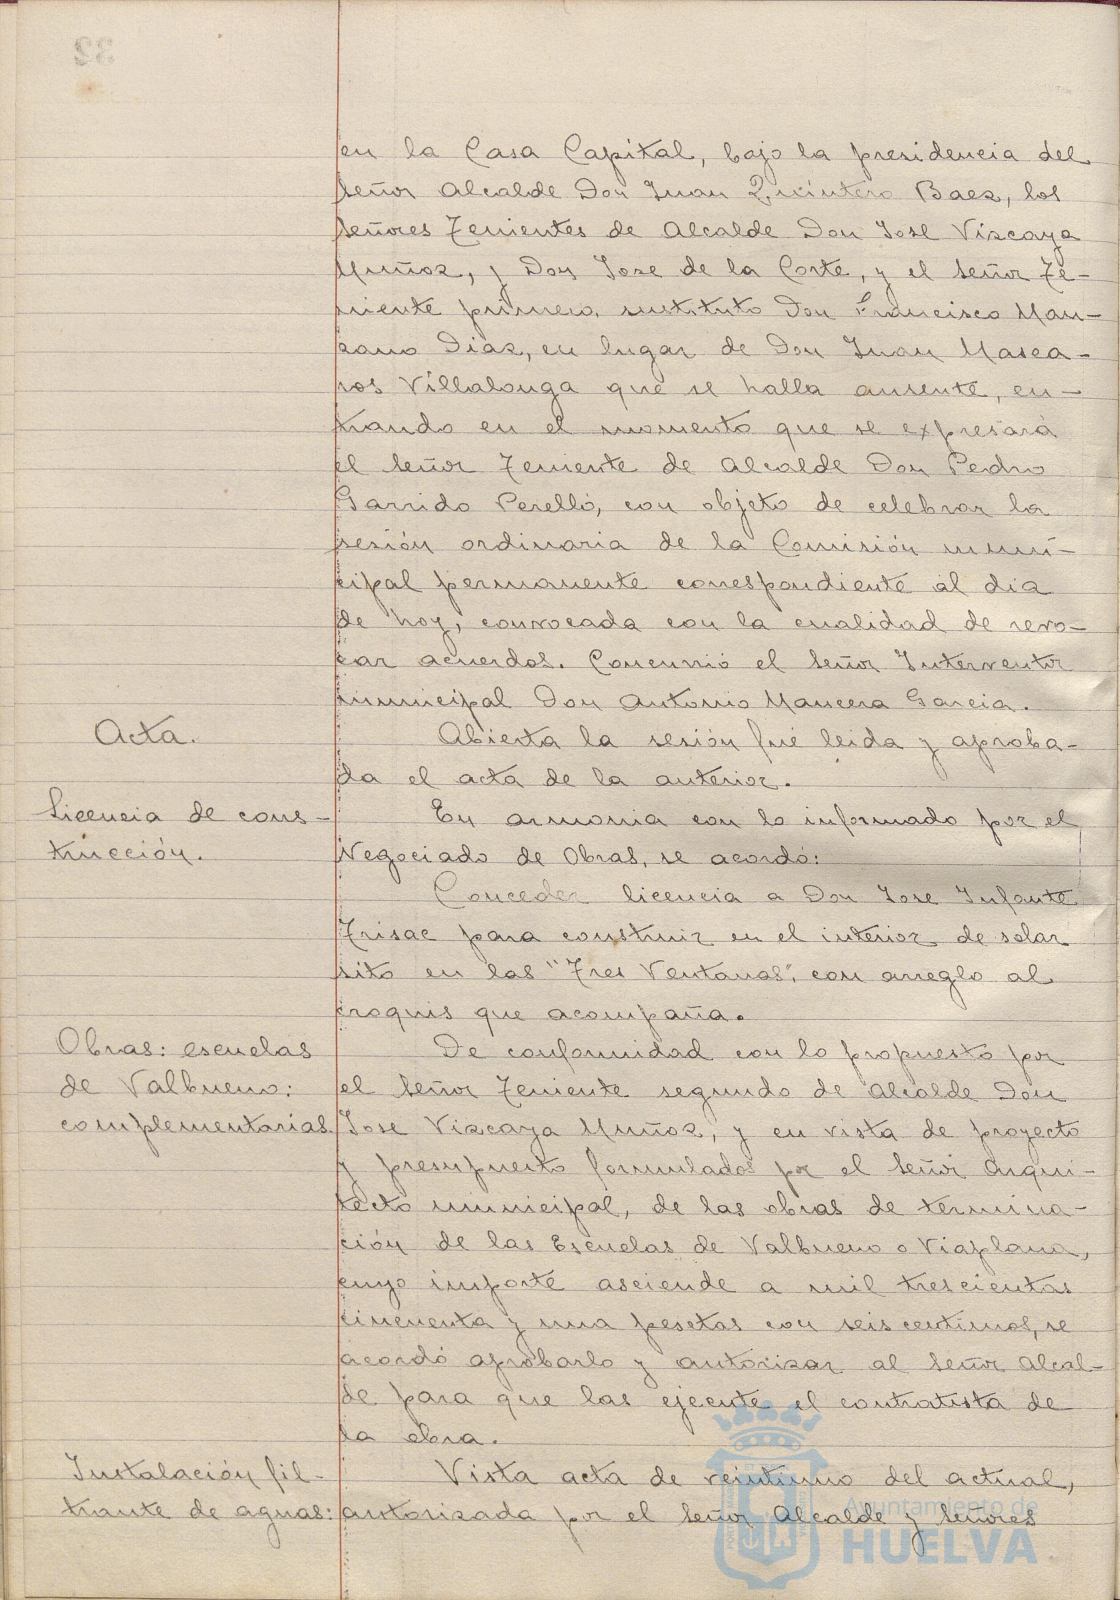 en la Casa Capital, bajo la presidencia del
señor Alcalde Don Juan Quintero Baez, los
señores Tenientes de Alcalde Don José Vizcaya
Muñoz, y Don Jose de la Corte, y el señor Te-
niente primero, sustituto Don Francisco Man-
zano Diaz, en lugar de Don Juan Masca-
ros Villalonga que se halla ausente, en-
trando en el momento que se expresará
el señor Teniente de Alcalde Don Pedro
Garrido Perelló, con objeto de celebrar la
sesión ordinaria de la Comisión muni-
cipal permanente correspondiente al dia
de hoy, convocada con la cualidad de revo-
car acuerdos. Concurrió el señor Interventor
municipal Don Antonio Mancera Garcia.
Acta.
Abierta la sesión fué leida y aproba-
da el acta de la anterior.
Licencia de cons-
trucción.
En armonia con lo informado por el
Negociado de Obras, se acordó:
Conceder licencia a Don Jose Infante
Trisac para construir en el interior de solar
sito en las "Tres Ventanas", con arreglo al
croquis que acompaña.
Obras: escuelas
de Valbueno:
complementarias.
De conformidad con lo propuesto por
el señor Teniente segundo de Alcalde Don
Jose Vizcaya Muñoz, y en vista de proyecto
y presupuesto formulados por el señor arqui-
tecto municipal, de las obras de termina-
ción de las Escuelas de Valbueno o Viaplana,
cuyo importe asciende a mil trescientas
cincuenta y una pesetas con seis centimos, se
acordó aprobarlo y autorizar al señor Alcal-
de para que las ejecute el contratista de
la obra.
Instalación fil-
trante de aguas:
Vista acta de veintiuno del actual,
autorizada por el señor Alcalde y señores
Ayuntamiento de
HUELVA
32